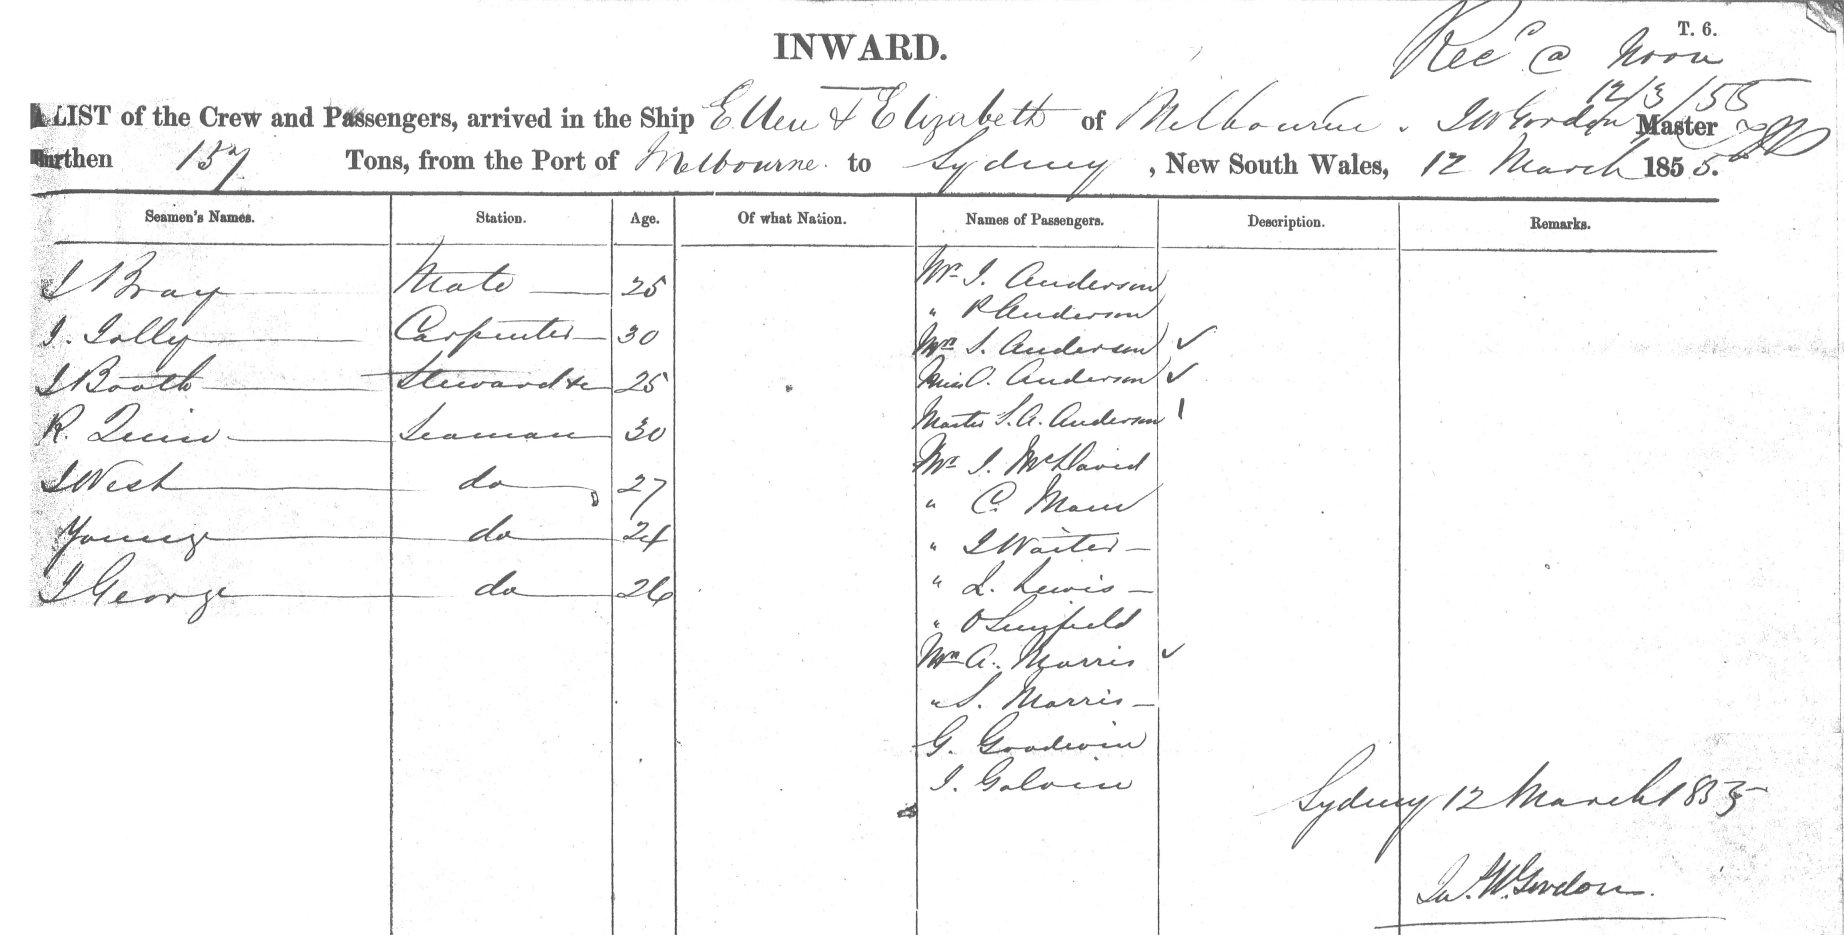 T. 6.
INWARD.
Recd @ Noon
12/3/55
A LIST of the Crew and Passengers, arrived in the Ship Ellen & Elizabeth of Melbourne. J W Gordon Master
Burthen 157 Tons, from the Port of Melbourne to Sydney, New South Wales, 12 March 1855.
Seamen's Names. Station. Age. Of what Nation. Names of Passengers. Description. Remarks.
J Bray Mate 25
J. Jolly Carpenter 30
J Booth Steward &c 25
R. Quin Seaman 30
J West do 27
Young do 24
J George do 26
Mr. J. Anderson
" R Anderson
Mrs S. Anderson ✓
Miss O. Anderson ✓
Master S. A. Anderson 1
Mr. J. McDavid
" C. Mann
" J Waiter
" L. Lewis
" O
Mrs A. Morris ✓
" S. Morris
G. Goodwin
J. Galvin
Sydney 12 March 1855
Jn. W. Gordon.